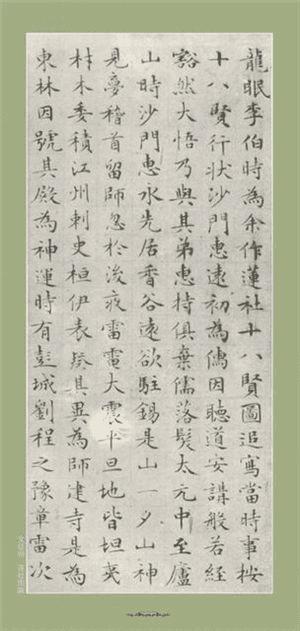 龍眠李伯時為余作蓮社十八賢圖追寫當時事按
十八賢行狀沙門惠遠初為儒因聽道安講般若經
豁然大悟乃與其弟惠持俱棄儒落髮太元中至廬
山時沙門惠永先居香谷遠欲駐錫是山一夕山神
見夢稽首留師忽於後夜雷電大震平旦地皆坦夷
材木委積江州刺史桓伊表發其異為師建寺是為
東林因號其殿為神運時有彭城劉程之豫章雷次